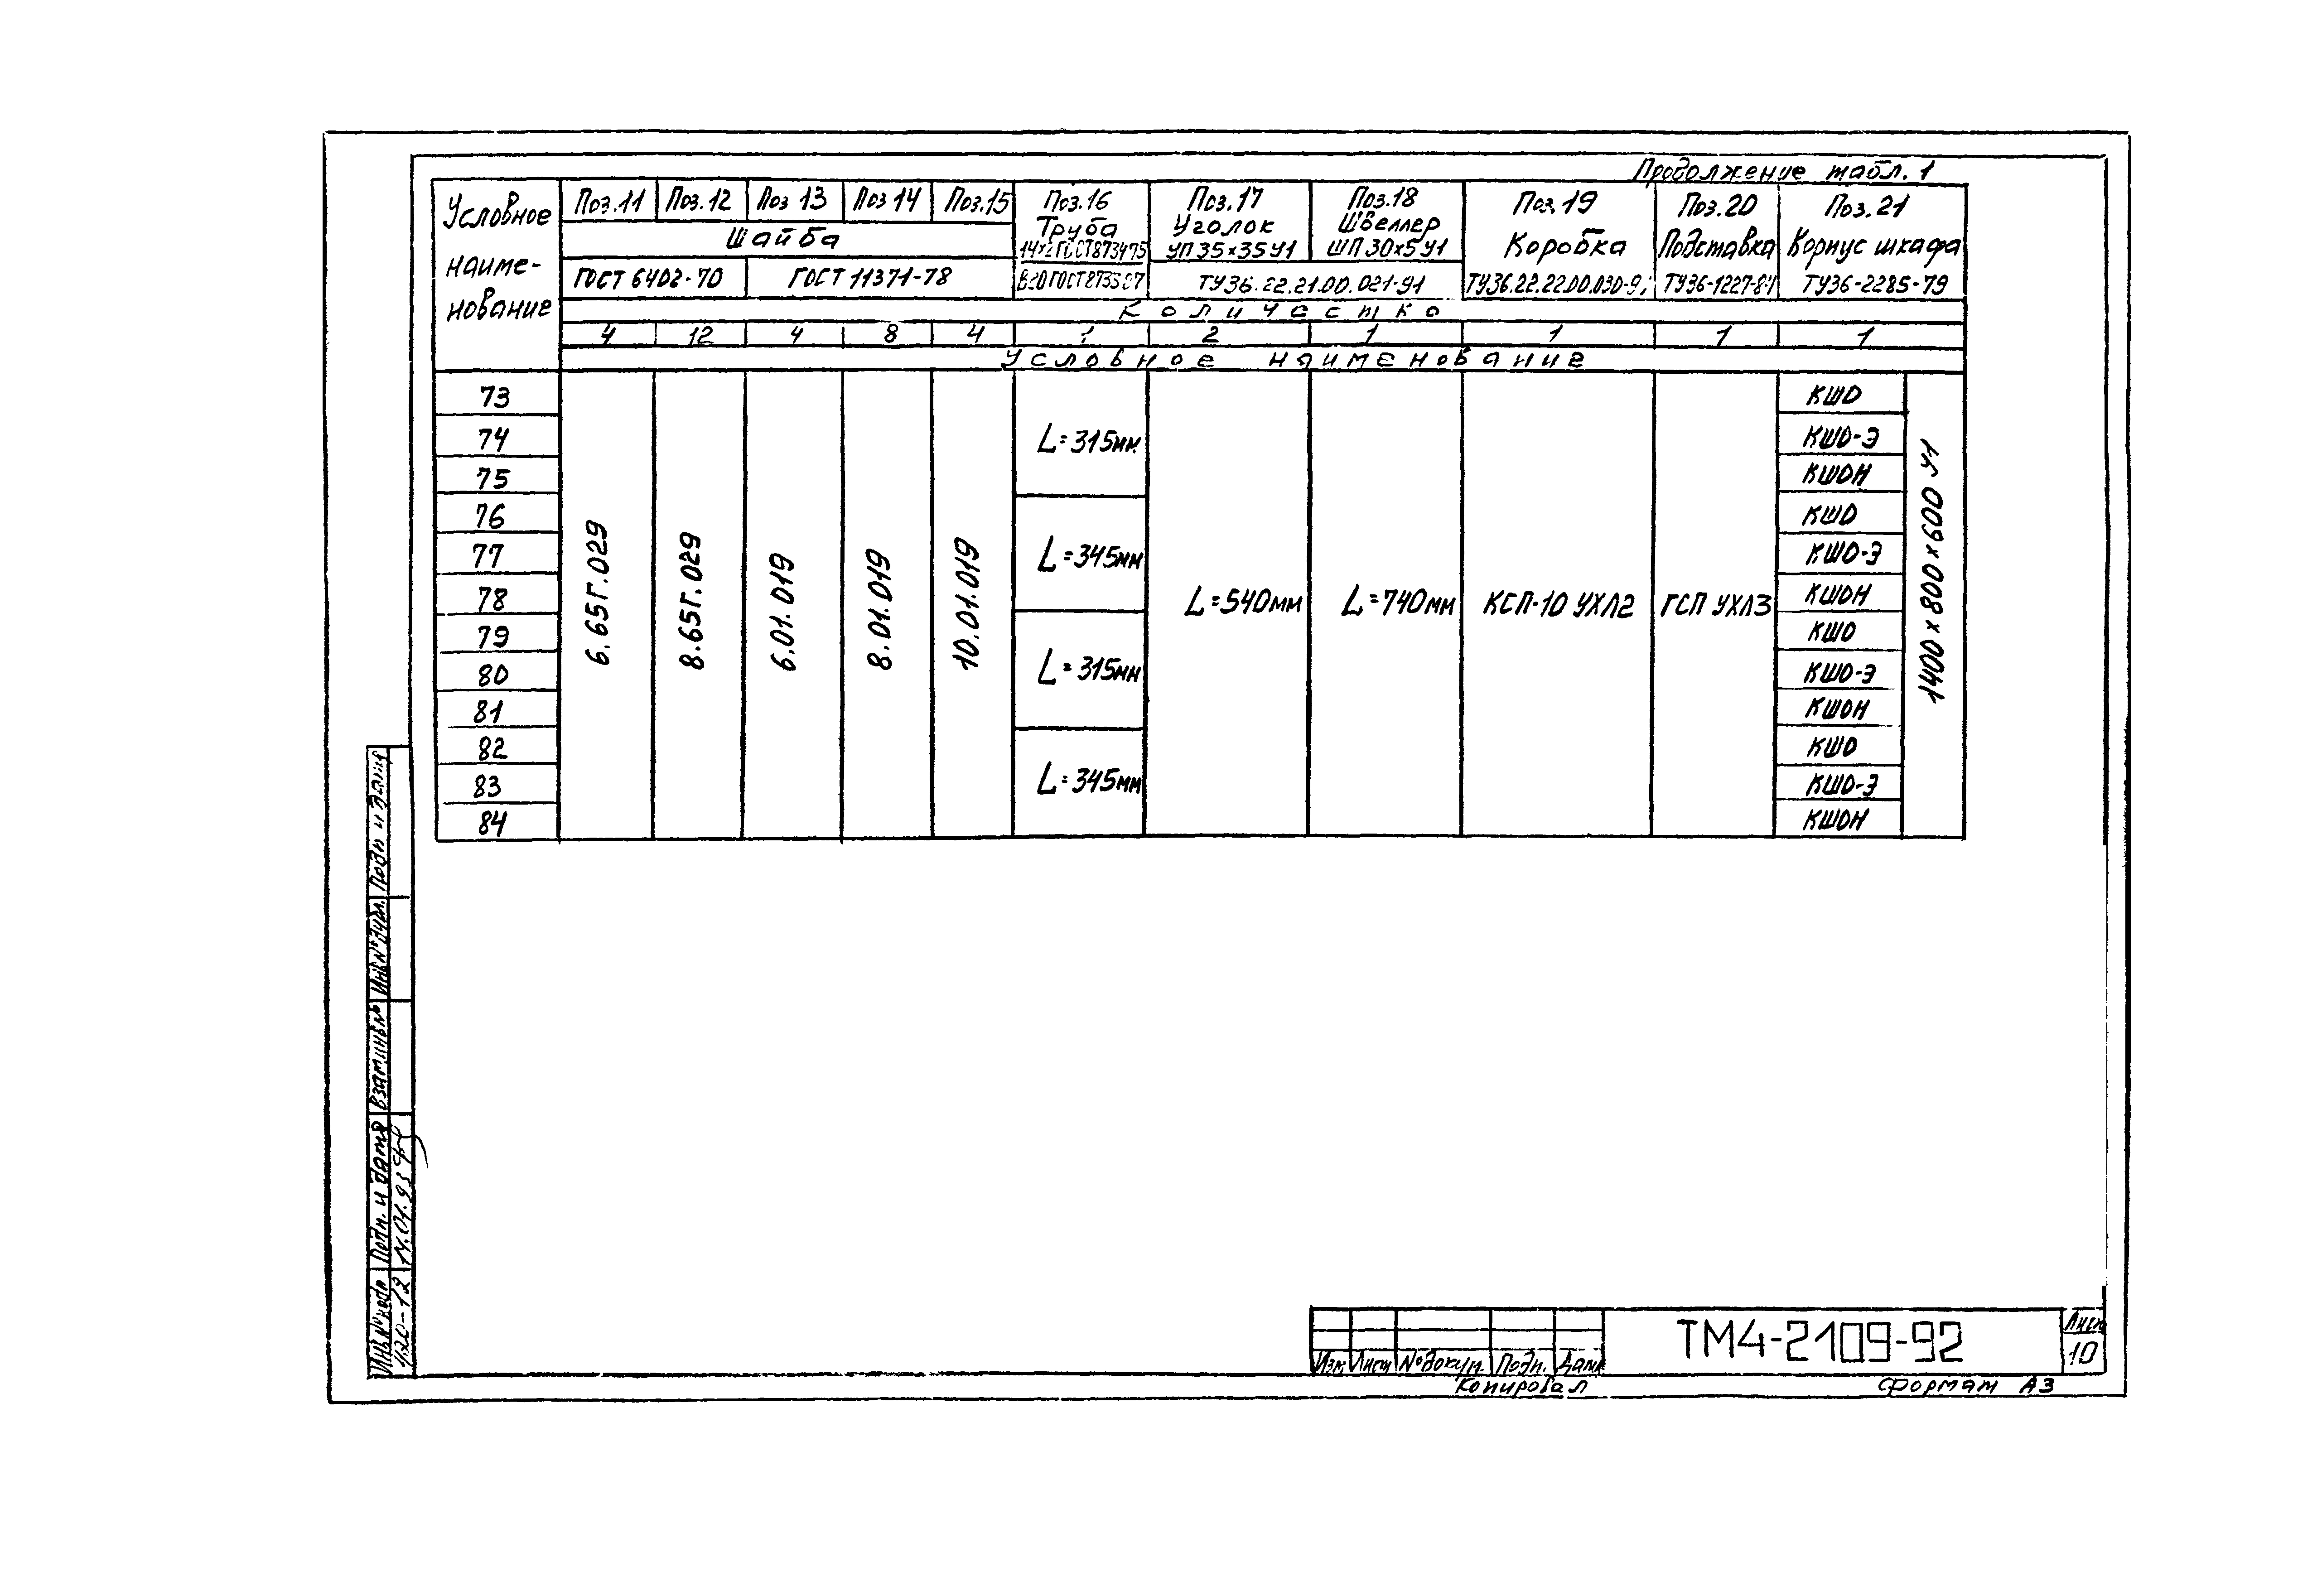 Продолжение табл. 1
Условное наименование
Поз.11 Поз.12 Поз 13 Поз 14 Поз.15
Шайба
ГОСТ 6402-70 ГОСТ 11371-78
Поз.16
Труба
Поз.17
Уголок
УП 35×35 У1
Поз.18
Швеллер
ШП 30×5 У1
ТУ36.22.21.00.021-91
Поз.19
Коробка
ТУ36.22.22.00.030-9
Поз.20
Подставка
ТУ36-1227-8
Поз.21
Корпус шкафа
ТУ36-2285-79
Количество
4 12 4 8 4 1 2 1 1 1 1
Условное наименование
73 КШО
74 L=315мм КШО-Э
75 КШОН
76 КШО
77 L=345мм КШО-Э
78 КШОН
79 КШО
80 L=315мм КШО-Э
81 КШОН
82 КШО
83 L=345мм КШО-Э
84 КШОН
6.65Г.029
8.65Г.029
6.01.019
8.01.019
10.01.019
L=540мм L=740мм КСП-10 УХЛ2 ГСП УХЛ3
1400×800×600 У1
Подп и дата
Инв№дубл.
Взам инв№
Подп. и дата
14.01.93
Инв№подл
420-12
Изм Лист №докум. Подп. Дата
ТМ4-2109-92
Лист
10
Копировал
Формат А3